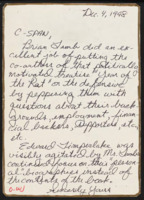 Dec. 4, 1998
C-SPAN,
Brian Lamb did an ex-
cellent job of putting the
co-author of that politically
motivated treatise "Year of
the Rat" on the defensive
by peppering him with
questions about their back-
grounds, employment, finan-
cial backers, supporters, etc.
etc.
Edward Timperlake was
visibly agitated by Mr. Lamb's
continued focus on their person-
al biographies instead of
the contents of the book.
Sincerely Yours